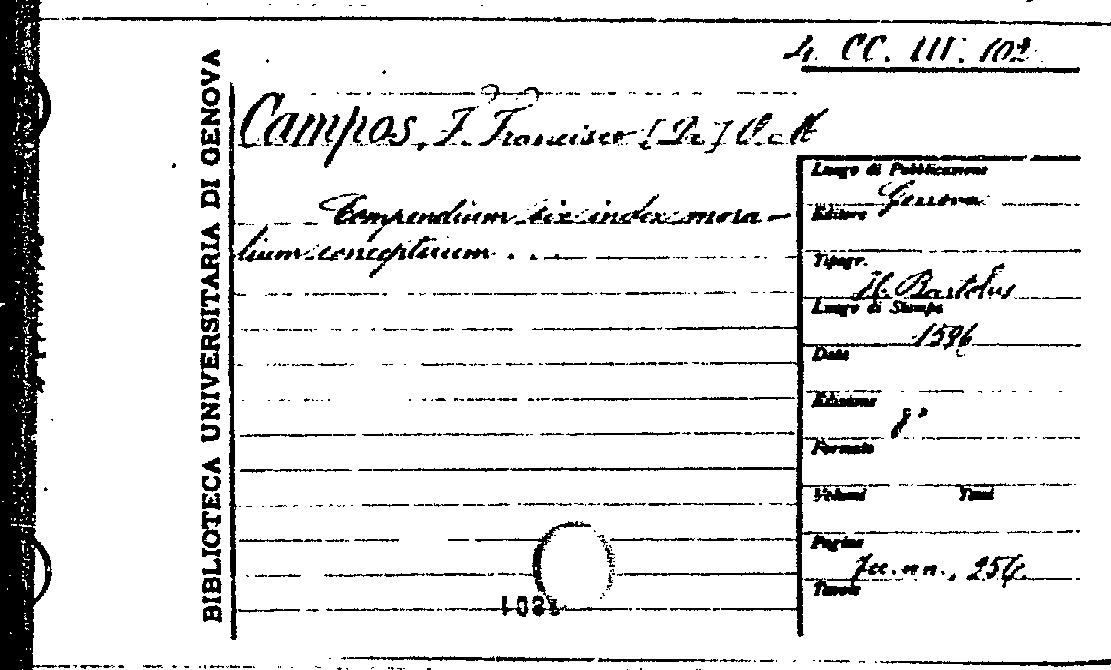 4. CC. III. 102
BIBLIOTECA UNIVERSITARIA DI GENOVA
Campos, F. Francisco [De] O. M
Compendium sive index mora-
lium conceptuum . . .
Luogo di Pubblicazione
Genova
Editore
Tipogr.
H. Bartolus
Luogo di Stampa
1596
Data
Edizione
8°
Formato
Volumi Tomi
Pagine
nn., 256
Tavole